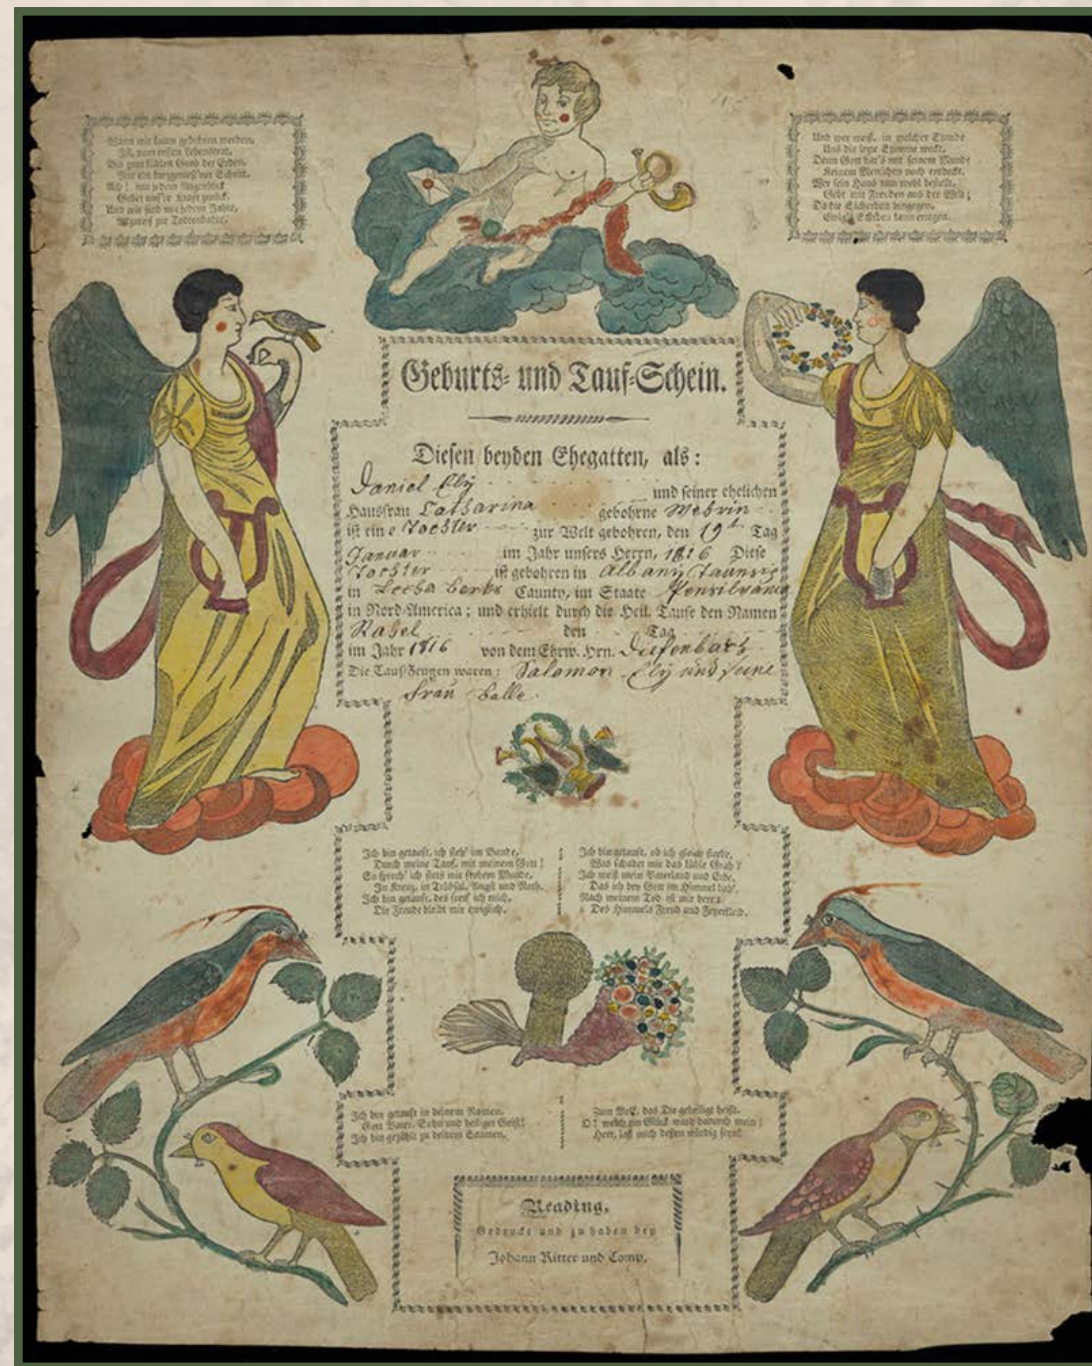 Wann wir kaum gebohren werden,
Ist vom ersten Lebenstrit,
Bis zum kühlen Grab der Erden,
Nur ein kurzgemess'ner Schritt.
Ach! mit jedem Augenblick
Gehet uns're Kraft zurück,
Und wir sind mit jedem Jahre,
Allzureif zur Todtenbahre.
Und wer weiß, in welcher Stunde
Uns die lezte Stimme weckt,
Denn Gott hat's mit seinem Munde
Keinem Menschen noch entdeckt.
Wer sein Haus nun wohl bestellt,
Geht mit Freuden aus der Welt;
Da die Sicherheit hingegen,
Ewig's Sterben kann erregen.
Geburts- und Tauf-Schein.
Diesen beyden Ehegatten, als:
Daniel Elÿ und seiner ehelichen
Hausfrau Catharina gebohrne Webrin
ist eine Tochter zur Welt gebohren, den 19t Tag
Januar im Jahr unsers Herrn, 1816 Diese
Tochter ist gebohren in Albany Taunsip
in Lecha berks Caunty, im Staate Pensilvania
in Nord-America; und erhielt durch die Heil. Taufe den Namen
Rahel den Tag
im Jahr 1816 von dem Ehrw. Hrn. Diefenbach
Die Tauf-Zeugen waren: Salomon Elÿ und seine
frau Salle
Ich bin getauft, ich steh' im Bunde,
Durch meine Tauf, mit meinem Gott!
So sprech' ich stets mit frohem Munde,
In Kreuz, in Trübsal, Angst und Noth.
Ich bin getauft, des freu' ich mich,
Die Freude bleibt mir ewiglich.
Ich bin getauft, ob ich gleich sterbe,
Was schadet mir das kühle Grab?
Ich weiß mein Vaterland und Erbe,
Das ich bey Gott im Himmel hab'.
Nach meinem Tod ist mir bereit
Des Himmels Freud und Feyerkleid.
Ich bin getauft in deinem Namen,
Gott Vater, Sohn und heiliger Geist!
Ich bin gezählt zu deinem Saamen,
Zum Volk, das Dir geheiligt heißt.
O! welch ein Glück ward dadurch mein!
Herr, laß mich dessen würdig seyn!
Reading,
Gedruckt und zu haben bey
Johann Ritter und Comp.